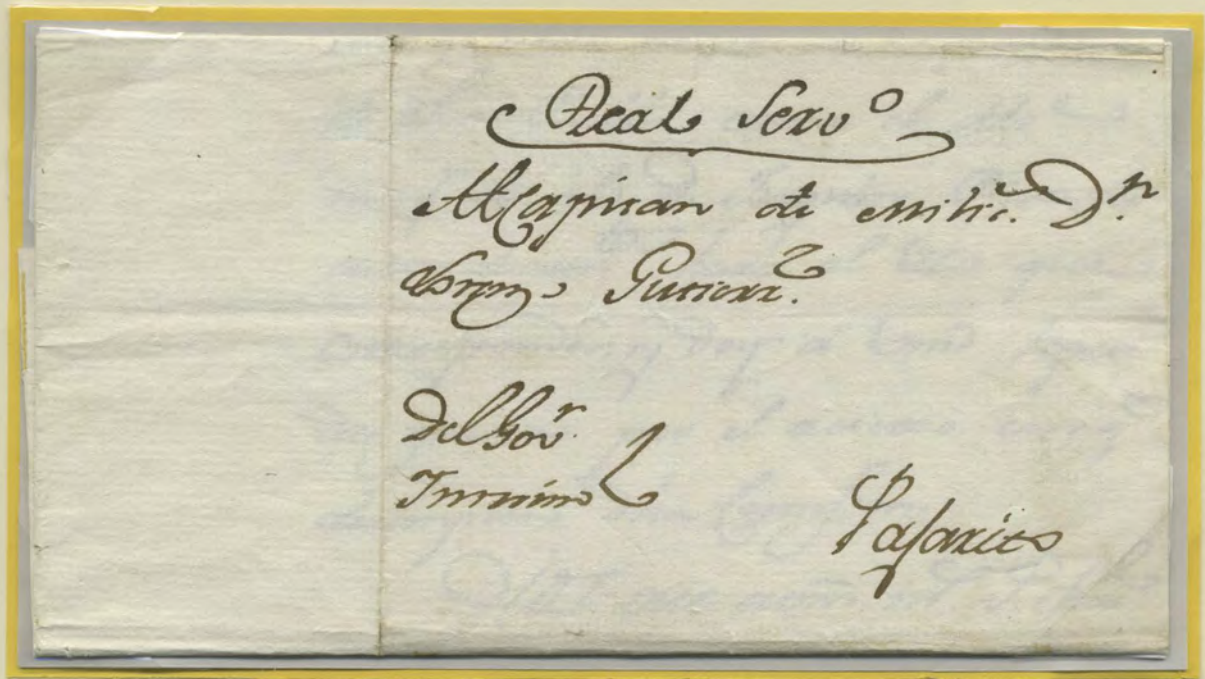 Real Servº
Al Capitan de Milic.ˢ Dⁿ.
Gutierrᶻ.
Del Govʳ.
Interino
Pajarito